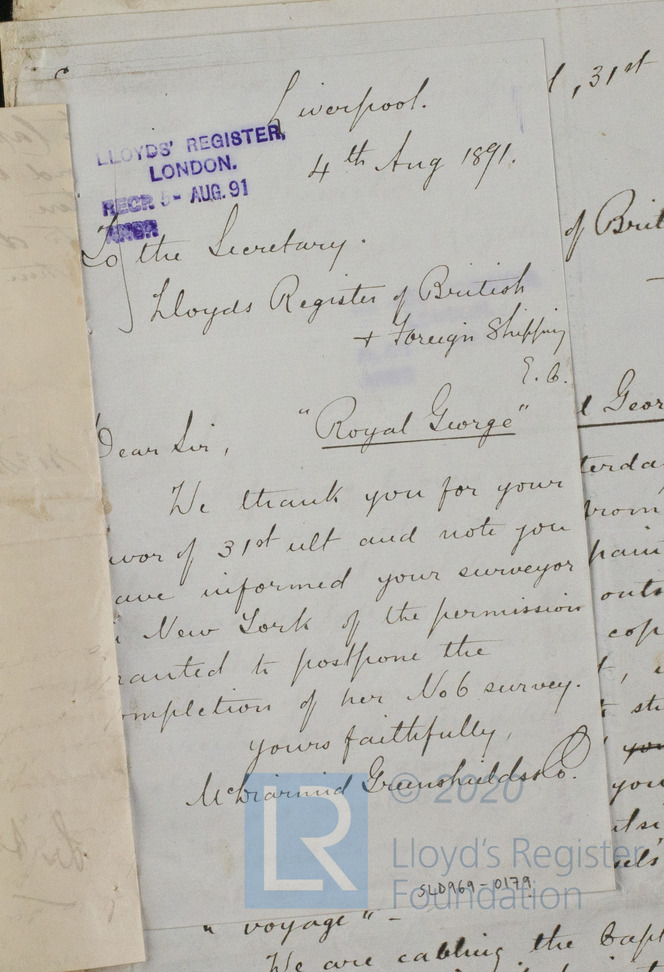 Liverpool.
LLOYDS' REGISTER,
LONDON.
RECD 5 - AUG. 91
4th Aug 1891.
To the Secretary.
Lloyds Register of British
+ Foreign Shipping
E.C.
Dear Sir, "Royal George"
We thank you for your
avor of 31st ult and note you
ave informed your surveyor
New York of the permission
ranted to postpone the
ompletion of her No 6 survey.
Yours faithfully,
McDiarmid Greenshields & Co.
LR © 2020
Lloyd's Register
Foundation
SLD969-0179
, 31st
of Brit
l Geor
terda
from
pain
outs
cop
you
"voyage" -
We are cabling the Capt